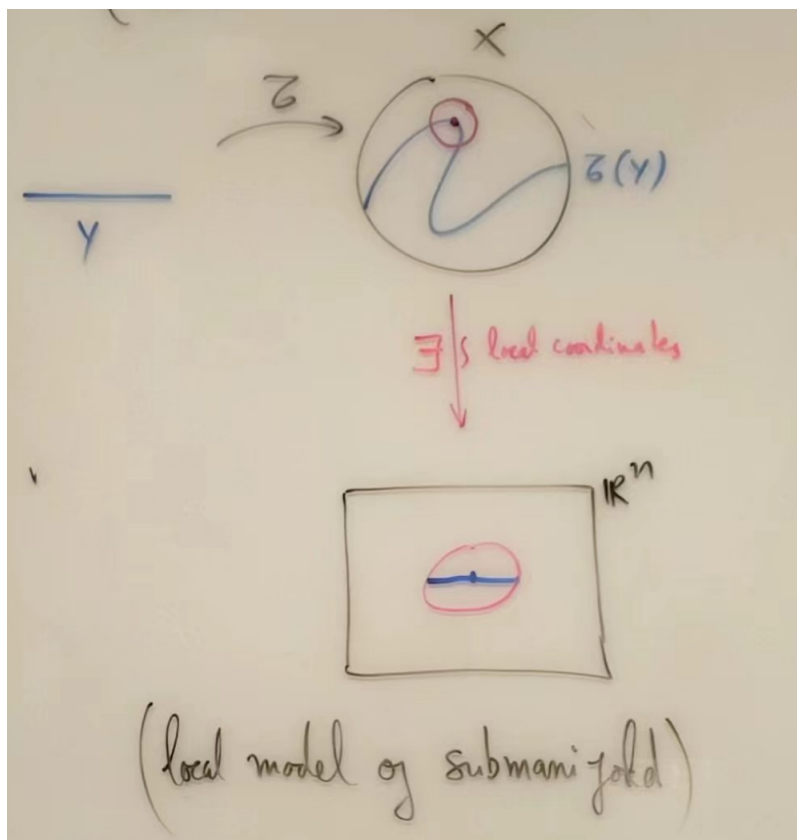 X
Y
(Y)
∃ local coordinates
ℝⁿ
(local model of submanifold)